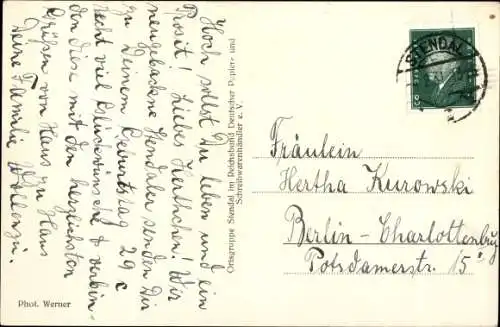 Hoch sollst Du leben und ein
Prosit! Liebes Herthchen! Wir
neugebackene Stendaler senden Dir
zu Deinem Geburtstag 29
recht viel Glückwünsche & verbin-
den diese mit den herzlichsten
Grüßen von Haus zu Haus
Deine Familie
Ortsgruppe Stendal im Reichsbund Deutscher Papier- und
Schreibwarenhändler e. V.
Phot. Werner
STENDAL
Fräulein
Hertha Kurowski
Berlin-Charlottenburg
Potsdamerstr. 15